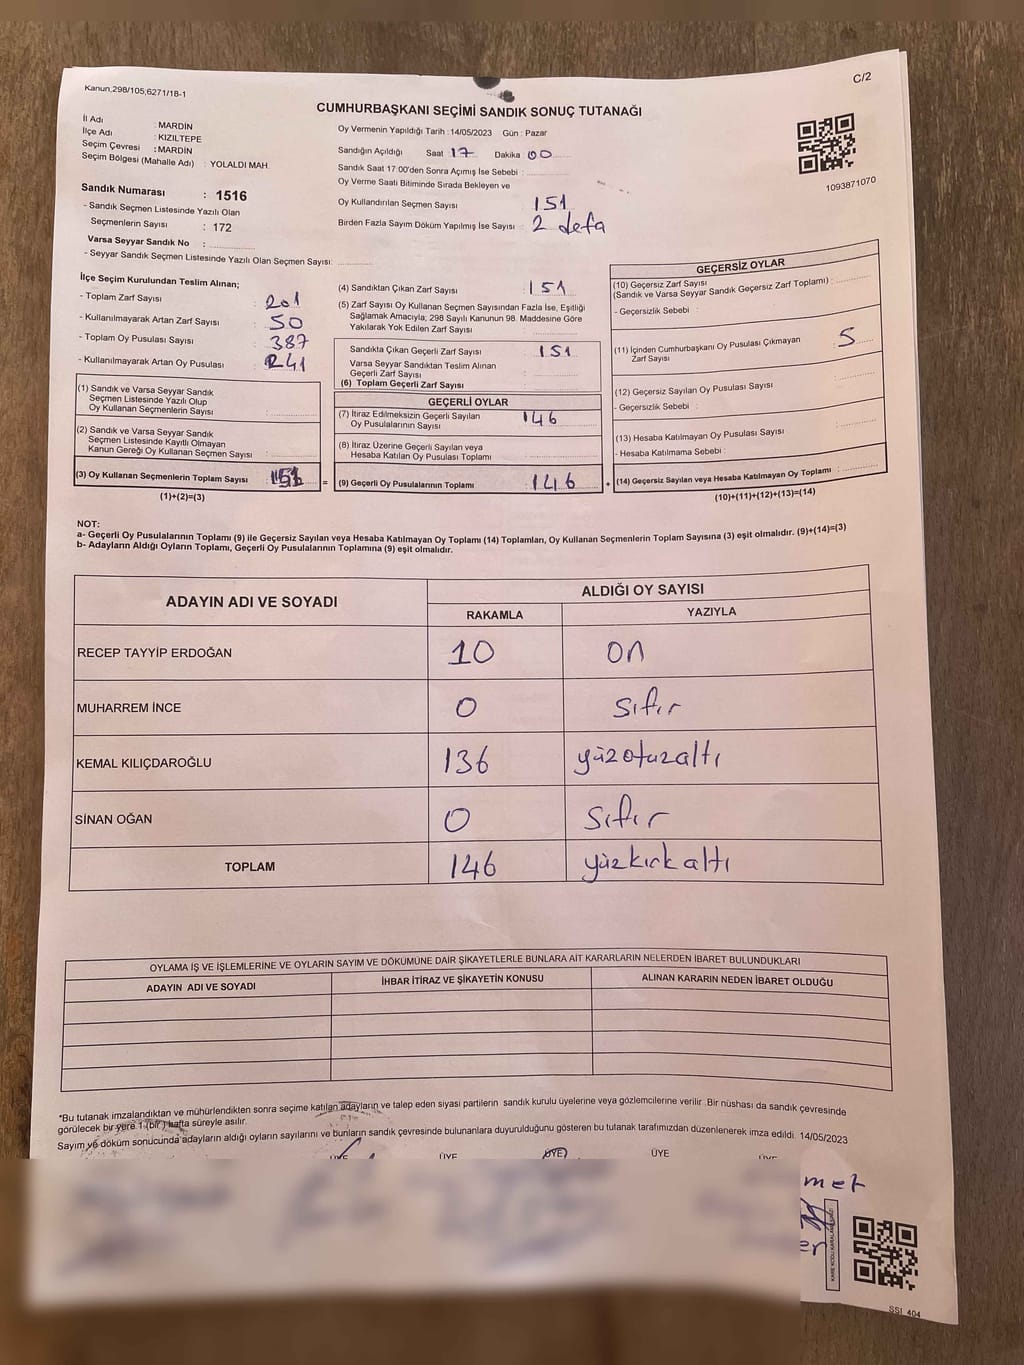 Kanun,298/105,6271/18-1
C/2
CUMHURBAŞKANI SEÇİMİ SANDIK SONUÇ TUTANAĞI
İl Adı : MARDİN
İlçe Adı : KIZILTEPE
Seçim Çevresi : MARDİN
Seçim Bölgesi (Mahalle Adı) : YOLALDI MAH.
Sandık Numarası : 1516
- Sandık Seçmen Listesinde Yazılı Olan
Seçmenlerin Sayısı : 172
Varsa Seyyar Sandık No :
- Seyyar Sandık Seçmen Listesinde Yazılı Olan Seçmen Sayısı:
Oy Vermenin Yapıldığı Tarih : 14/05/2023 Gün : Pazar
Sandığın Açıldığı Saat 17 Dakika 00
Sandık Saat 17:00'den Sonra Açımış İse Sebebi :
Oy Verme Saati Bitiminde Sırada Bekleyen ve
Oy Kullandırılan Seçmen Sayısı : 151
Birden Fazla Sayım Döküm Yapılmış İse Sayısı : 2 defa
1093871070
İlçe Seçim Kurulundan Teslim Alınan;
- Toplam Zarf Sayısı : 201
- Kullanılmayarak Artan Zarf Sayısı : 50
- Toplam Oy Pusulası Sayısı : 387
- Kullanılmayarak Artan Oy Pusulası : 241
(1) Sandık ve Varsa Seyyar Sandık
Seçmen Listesinde Yazılı Olup
Oy Kullanan Seçmenlerin Sayısı :
(2) Sandık ve Varsa Seyyar Sandık
Seçmen Listesinde Kayıtlı Olmayan
Kanun Gereği Oy Kullanan Seçmen Sayısı :
(3) Oy Kullanan Seçmenlerin Toplam Sayısı : 151 =
(1)+(2)=(3)
(4) Sandıktan Çıkan Zarf Sayısı : 151
(5) Zarf Sayısı Oy Kullanan Seçmen Sayısından Fazla İse, Eşitliği
Sağlamak Amacıyla; 298 Sayılı Kanunun 98. Maddesine Göre
Yakılarak Yok Edilen Zarf Sayısı
Sandıkta Çıkan Geçerli Zarf Sayısı : 151
Varsa Seyyar Sandıktan Teslim Alınan
Geçerli Zarf Sayısı :
(6) Toplam Geçerli Zarf Sayısı
GEÇERLİ OYLAR
(7) İtiraz Edilmeksizin Geçerli Sayılan
Oy Pusulalarının Sayısı : 146
(8) İtiraz Üzerine Geçerli Sayılan veya
Hesaba Katılan Oy Pusulası Toplamı
(9) Geçerli Oy Pusulalarının Toplamı : 146 +
GEÇERSİZ OYLAR
(10) Geçersiz Zarf Sayısı
(Sandık ve Varsa Seyyar Sandık Geçersiz Zarf Toplamı) :
- Geçersizlik Sebebi :
(11) İçinden Cumhurbaşkanı Oy Pusulası Çıkmayan
Zarf Sayısı : 5
(12) Geçersiz Sayılan Oy Pusulası Sayısı
- Geçersizlik Sebebi :
(13) Hesaba Katılmayan Oy Pusulası Sayısı
- Hesaba Katılmama Sebebi :
(14) Geçersiz Sayılan veya Hesaba Katılmayan Oy Toplamı :
(10)+(11)+(12)+(13)=(14)
NOT:
a- Geçerli Oy Pusulalarının Toplamı (9) ile Geçersiz Sayılan veya Hesaba Katılmayan Oy Toplamı (14) Toplamları, Oy Kullanan Seçmenlerin Toplam Sayısına (3) eşit olmalıdır. (9)+(14)=(3)
b- Adayların Aldığı Oyların Toplamı, Geçerli Oy Pusulalarının Toplamına (9) eşit olmalıdır.
ADAYIN ADI VE SOYADI ALDIĞI OY SAYISI
RAKAMLA YAZIYLA
RECEP TAYYİP ERDOĞAN 10 on
MUHARREM İNCE 0 sıfır
KEMAL KILIÇDAROĞLU 136 yüzotuzaltı
SİNAN OĞAN 0 sıfır
TOPLAM 146 yüzkırkaltı
OYLAMA İŞ VE İŞLEMLERİNE VE OYLARIN SAYIM VE DÖKÜMÜNE DAİR ŞİKAYETLERLE BUNLARA AİT KARARLARIN NELERDEN İBARET BULUNDUKLARI
ADAYIN ADI VE SOYADI İHBAR İTİRAZ VE ŞİKAYETİN KONUSU ALINAN KARARIN NEDEN İBARET OLDUĞU
*Bu tutanak imzalandıktan ve mühürlendikten sonra seçime katılan adayların ve talep eden siyasi partilerin sandık kurulu üyelerine veya gözlemcilerine verilir .Bir nüshası da sandık çevresinde
görülecek bir yere 1 (bir ) hafta süreyle asılır.
Sayım ve döküm sonucunda adayların aldığı oyların sayılarını ve bunların sandık çevresinde bulunanlara duyurulduğunu gösteren bu tutanak tarafımızdan düzenlenerek imza edildi. 14/05/2023
ÜYE ÜYE ÜYE ÜYE ÜYE
met
er
SSİ_404